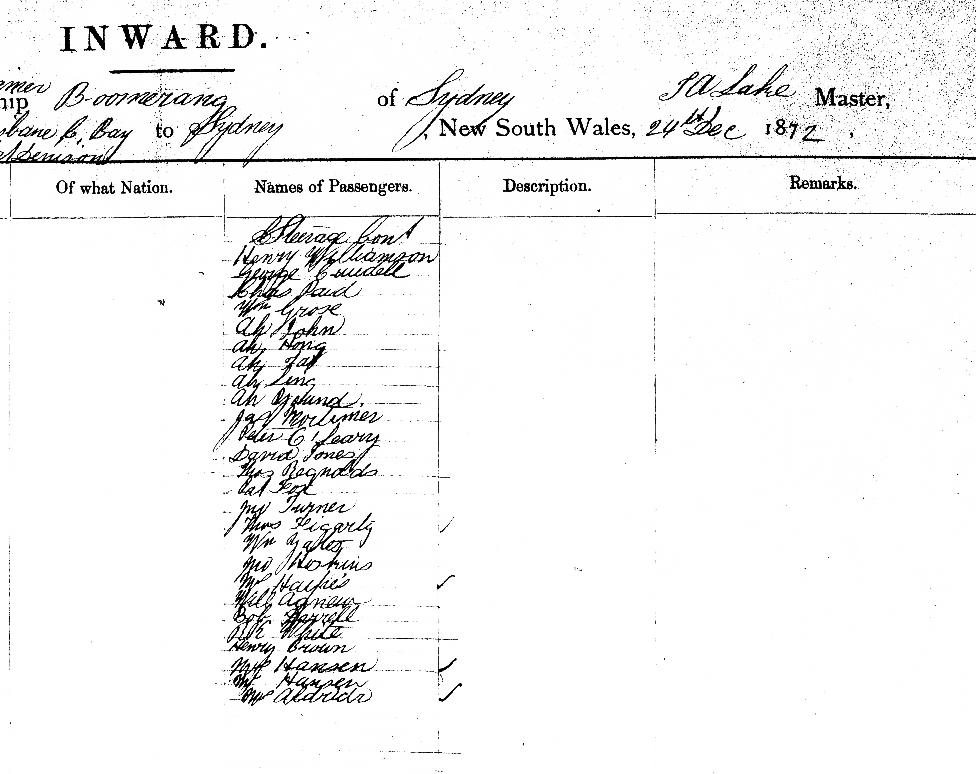 INWARD.
Boomerang of Sydney Lake Master,
Bay to Sydney, New South Wales, 24th Dec 1872.
Denison
Of what Nation. Names of Passengers. Description. Remarks.
Steerage Cont
Henry Williamson
George
Chas
Wm Grose
Ah John
Ah Hong
Ah
Ah Ling
Ah
Jas Mortimer
Peter O'Leary
David Jones
Thos Reynolds
Pat Fox
Jno Turner
Figarty
Wm Yates
Jno Hoskins
Will Agnew
Bob
White
Henry Brown
Mrs Hansen
Mr Hansen